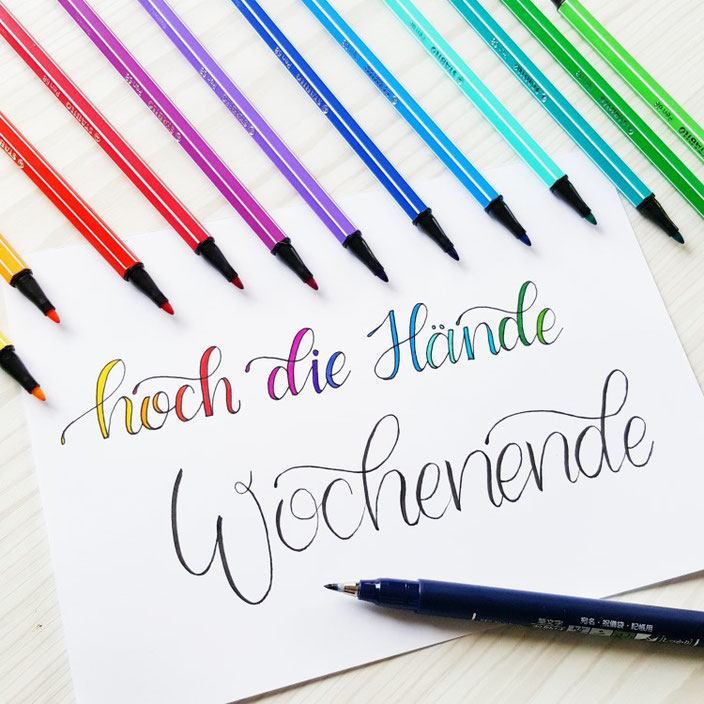 STABILO
STABILO
STABILO
STABILO
STABILO
STABILO
hoch die Hände
Wochenende
筆文字
宛名・祝儀袋・記帳用